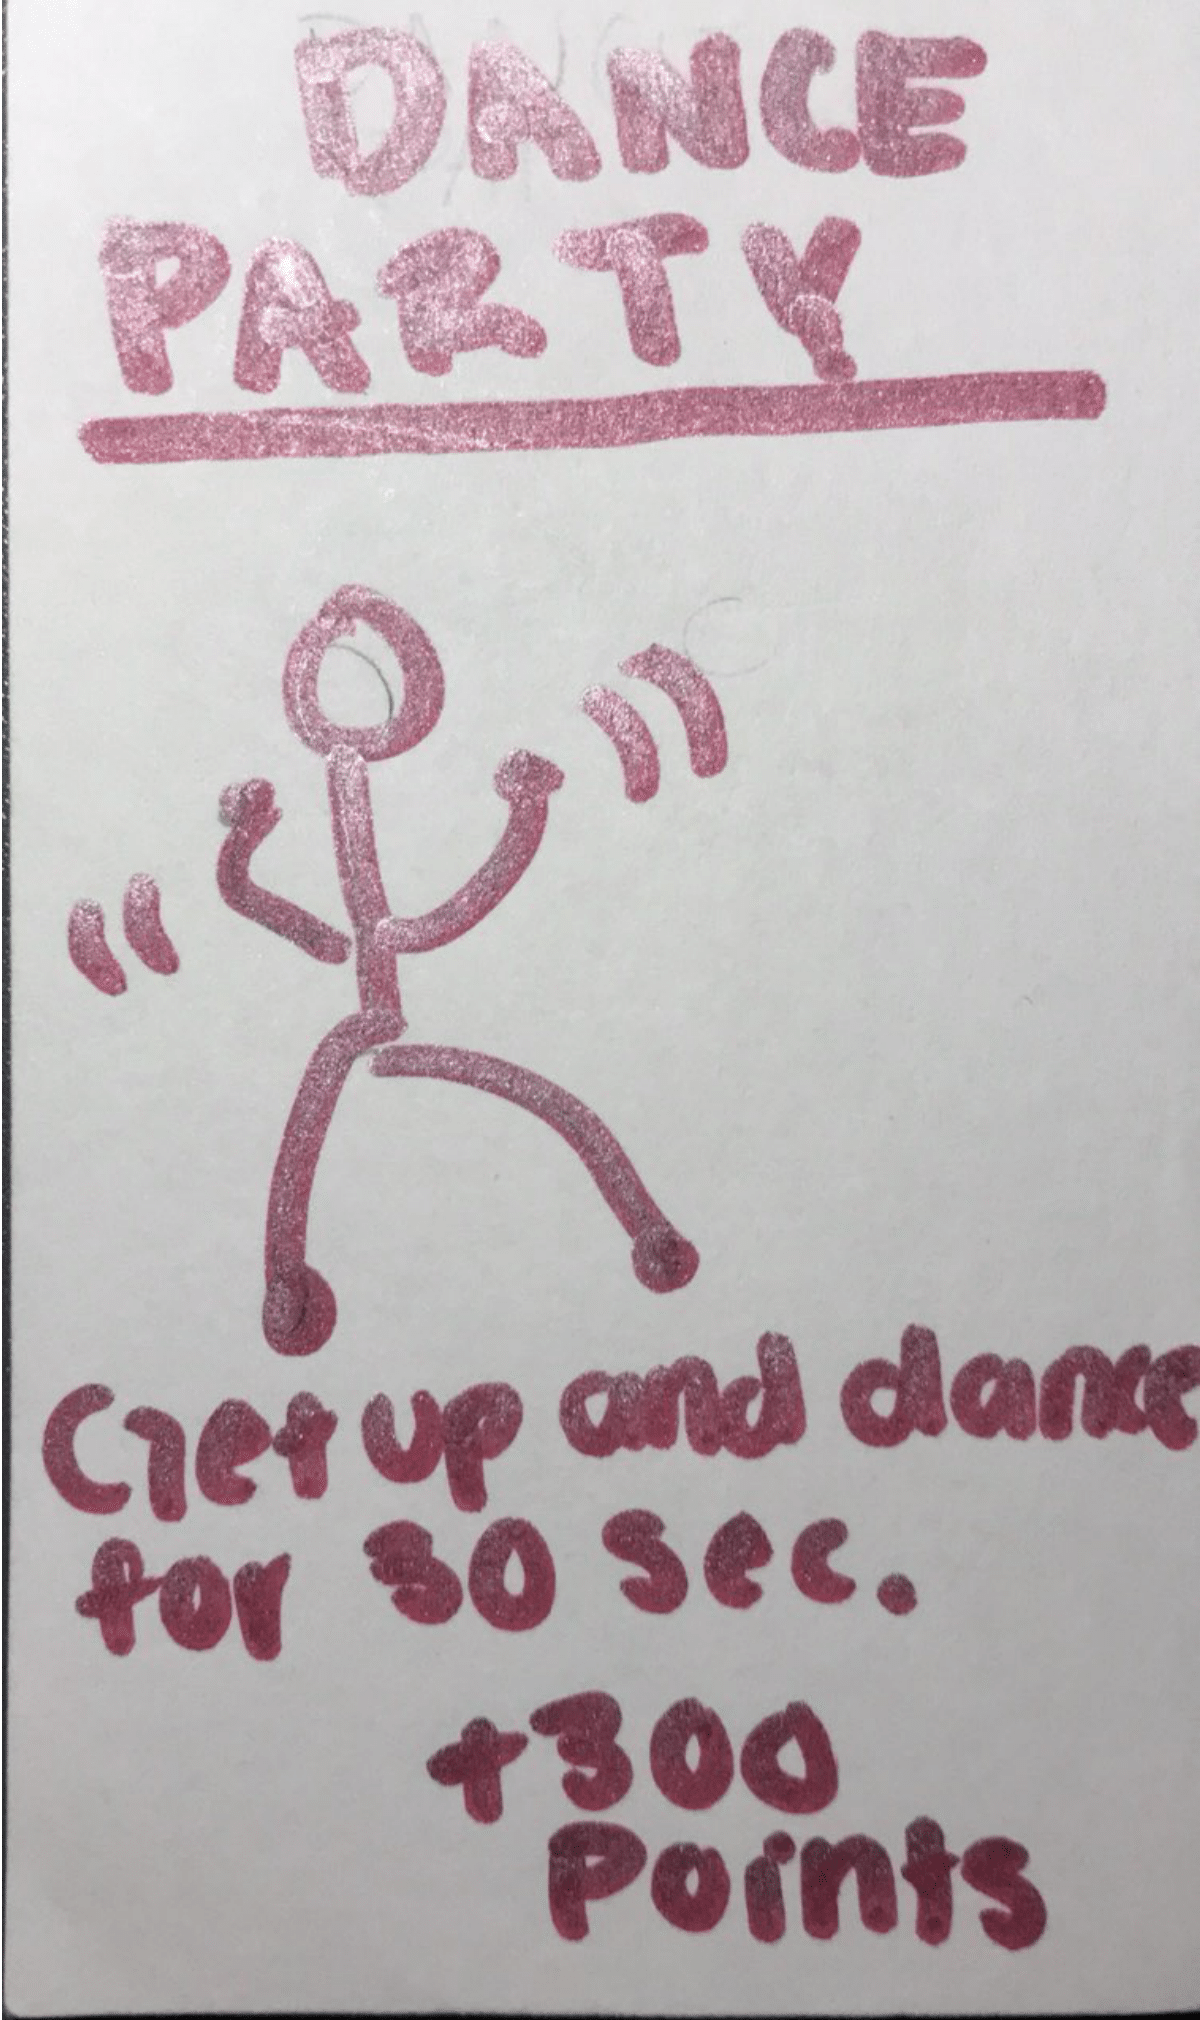 DANCE
PARTY
Get up and dance
for 30 sec.
+300
Points